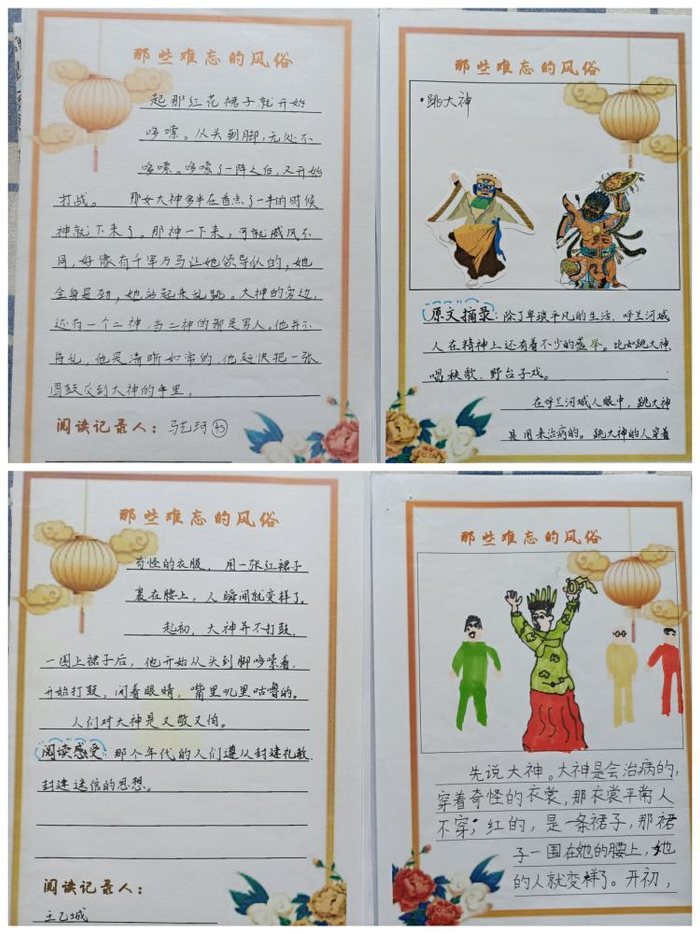 那些难忘的风俗
起那红花裙子就开始
哆嗦。从头到脚,无处不
哆嗦。哆嗦了一阵之后,又开始
打战。 那女大神多半在香点了一半的时候
神就下来了。那神一下来,可就威风不
同,好像有千军万马让她领导似的,她
全身是劲,她站起来乱跳。大神的旁边,
还有一个二神,当二神的都是男人。他并不
昏乱,他是清晰如常的,他赶快把一张
圆鼓交到大神的手里。
阅读记录人:马艺珂
那些难忘的风俗
·跳大神
原文摘录:除了卑琐平凡的生活,呼兰河城
人在精神上还有着不少的盛举。比如跳大神、
唱秧歌、野台子戏。
在呼兰河城人眼中,跳大神
是用来治病的。跳大神的人穿着
那些难忘的风俗
奇怪的衣服,用一张红裙子
裹在腰上,人瞬间就变样了。
起初,大神并不打鼓,
一围上裙子后,他开始从头到脚哆嗦着,
开始打鼓,闭着眼睛,嘴里叽里咕噜的。
人们对大神是又敬又怕。
阅读感受:那个年代的人们遵从封建礼教、
封建迷信的思想。
阅读记录人:
那些难忘的风俗
先说大神。大神是会治病的,
穿着奇怪的衣裳,那衣裳平常人
不穿;红的,是一条裙子,那裙
子一围在她的腰上,她
的人就变样了。开初,